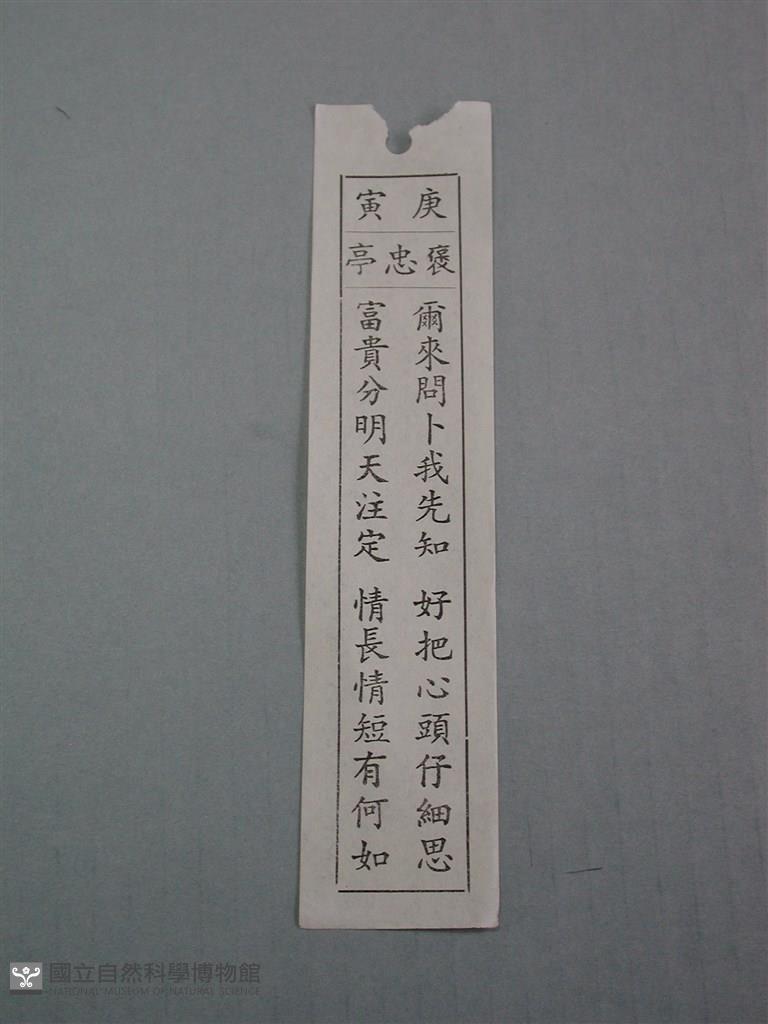 庚寅
褒忠亭
爾來問卜我先知 好把心頭仔細思
富貴分明天注定 情長情短有何如
國立自然科學博物館
NATIONAL MUSEUM OF NATURAL SCIENCE